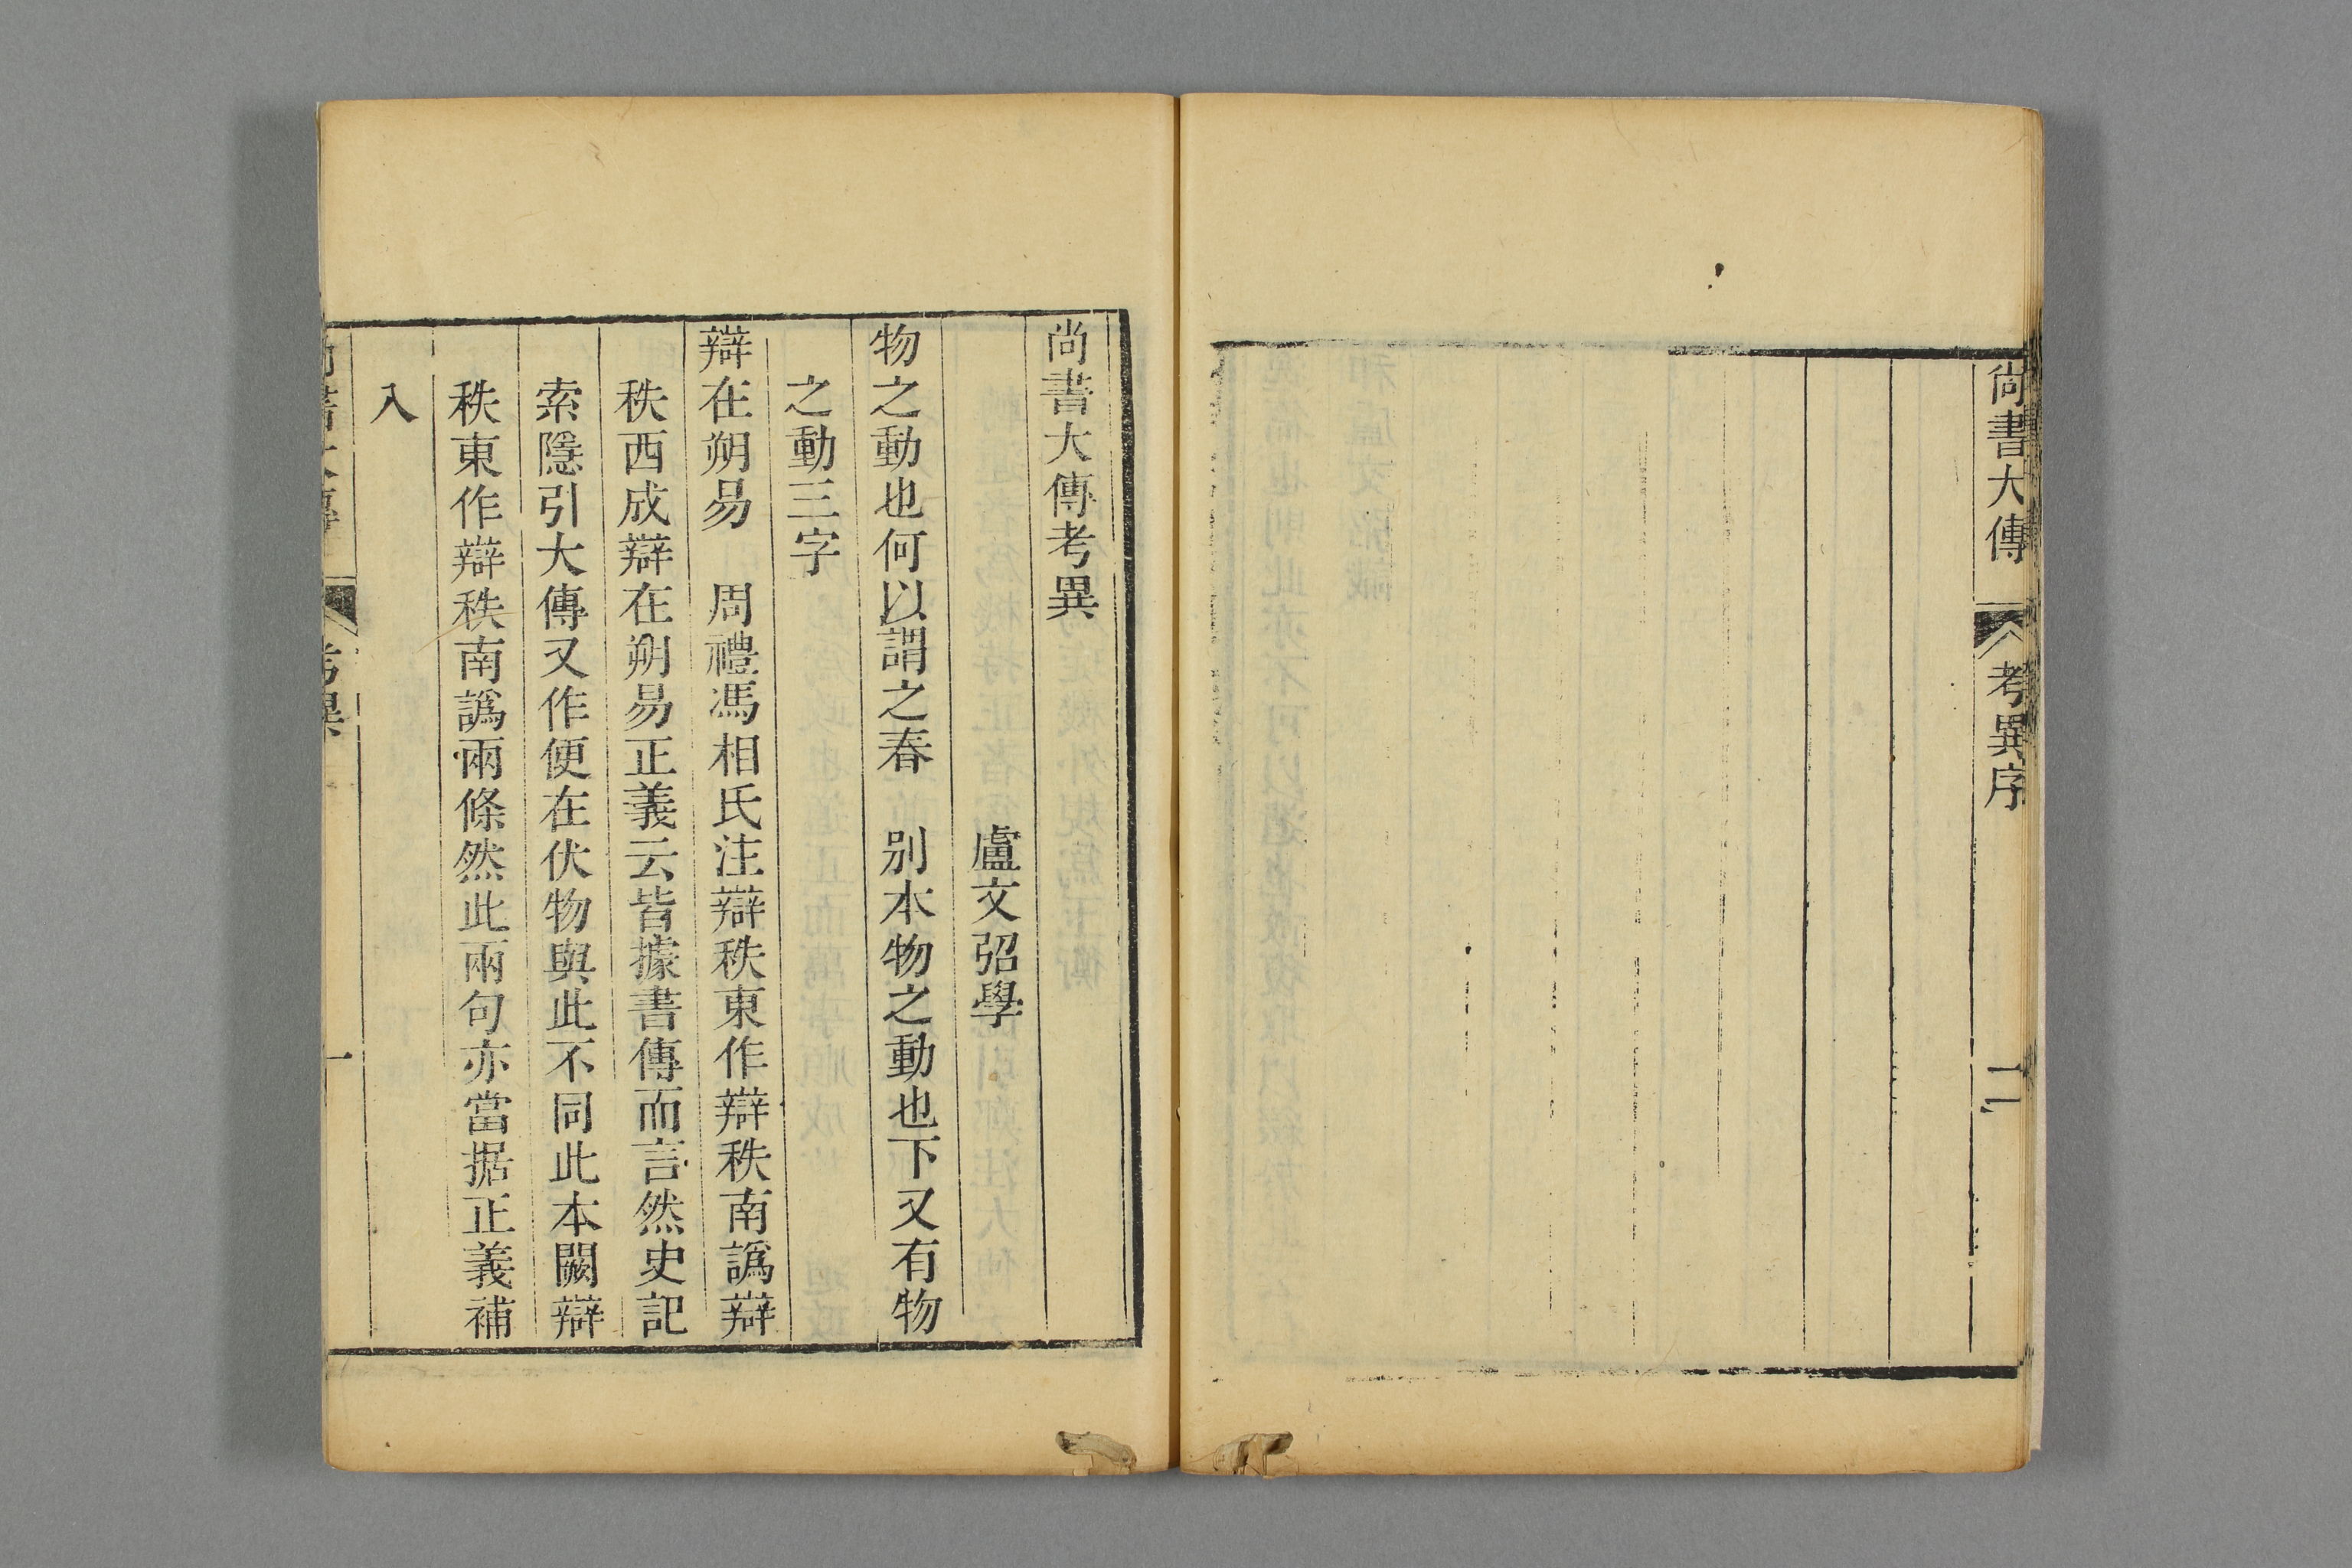 尚書大傳
考異序
二
尚書大傳考異
盧文弨學
物之動也何以謂之春　別本物之動也下又有物
之動三字
辯在朔易　周禮馮相氏注辯秩東作辯秩南譌辯
秩西成辯在朔易正義云皆據書傳而言然史記
索隱引大傳又作便在伏物與此不同此本闕辯
秩東作辯秩南譌兩條然此兩句亦當据正義補
入
尚書大傳
考異
一